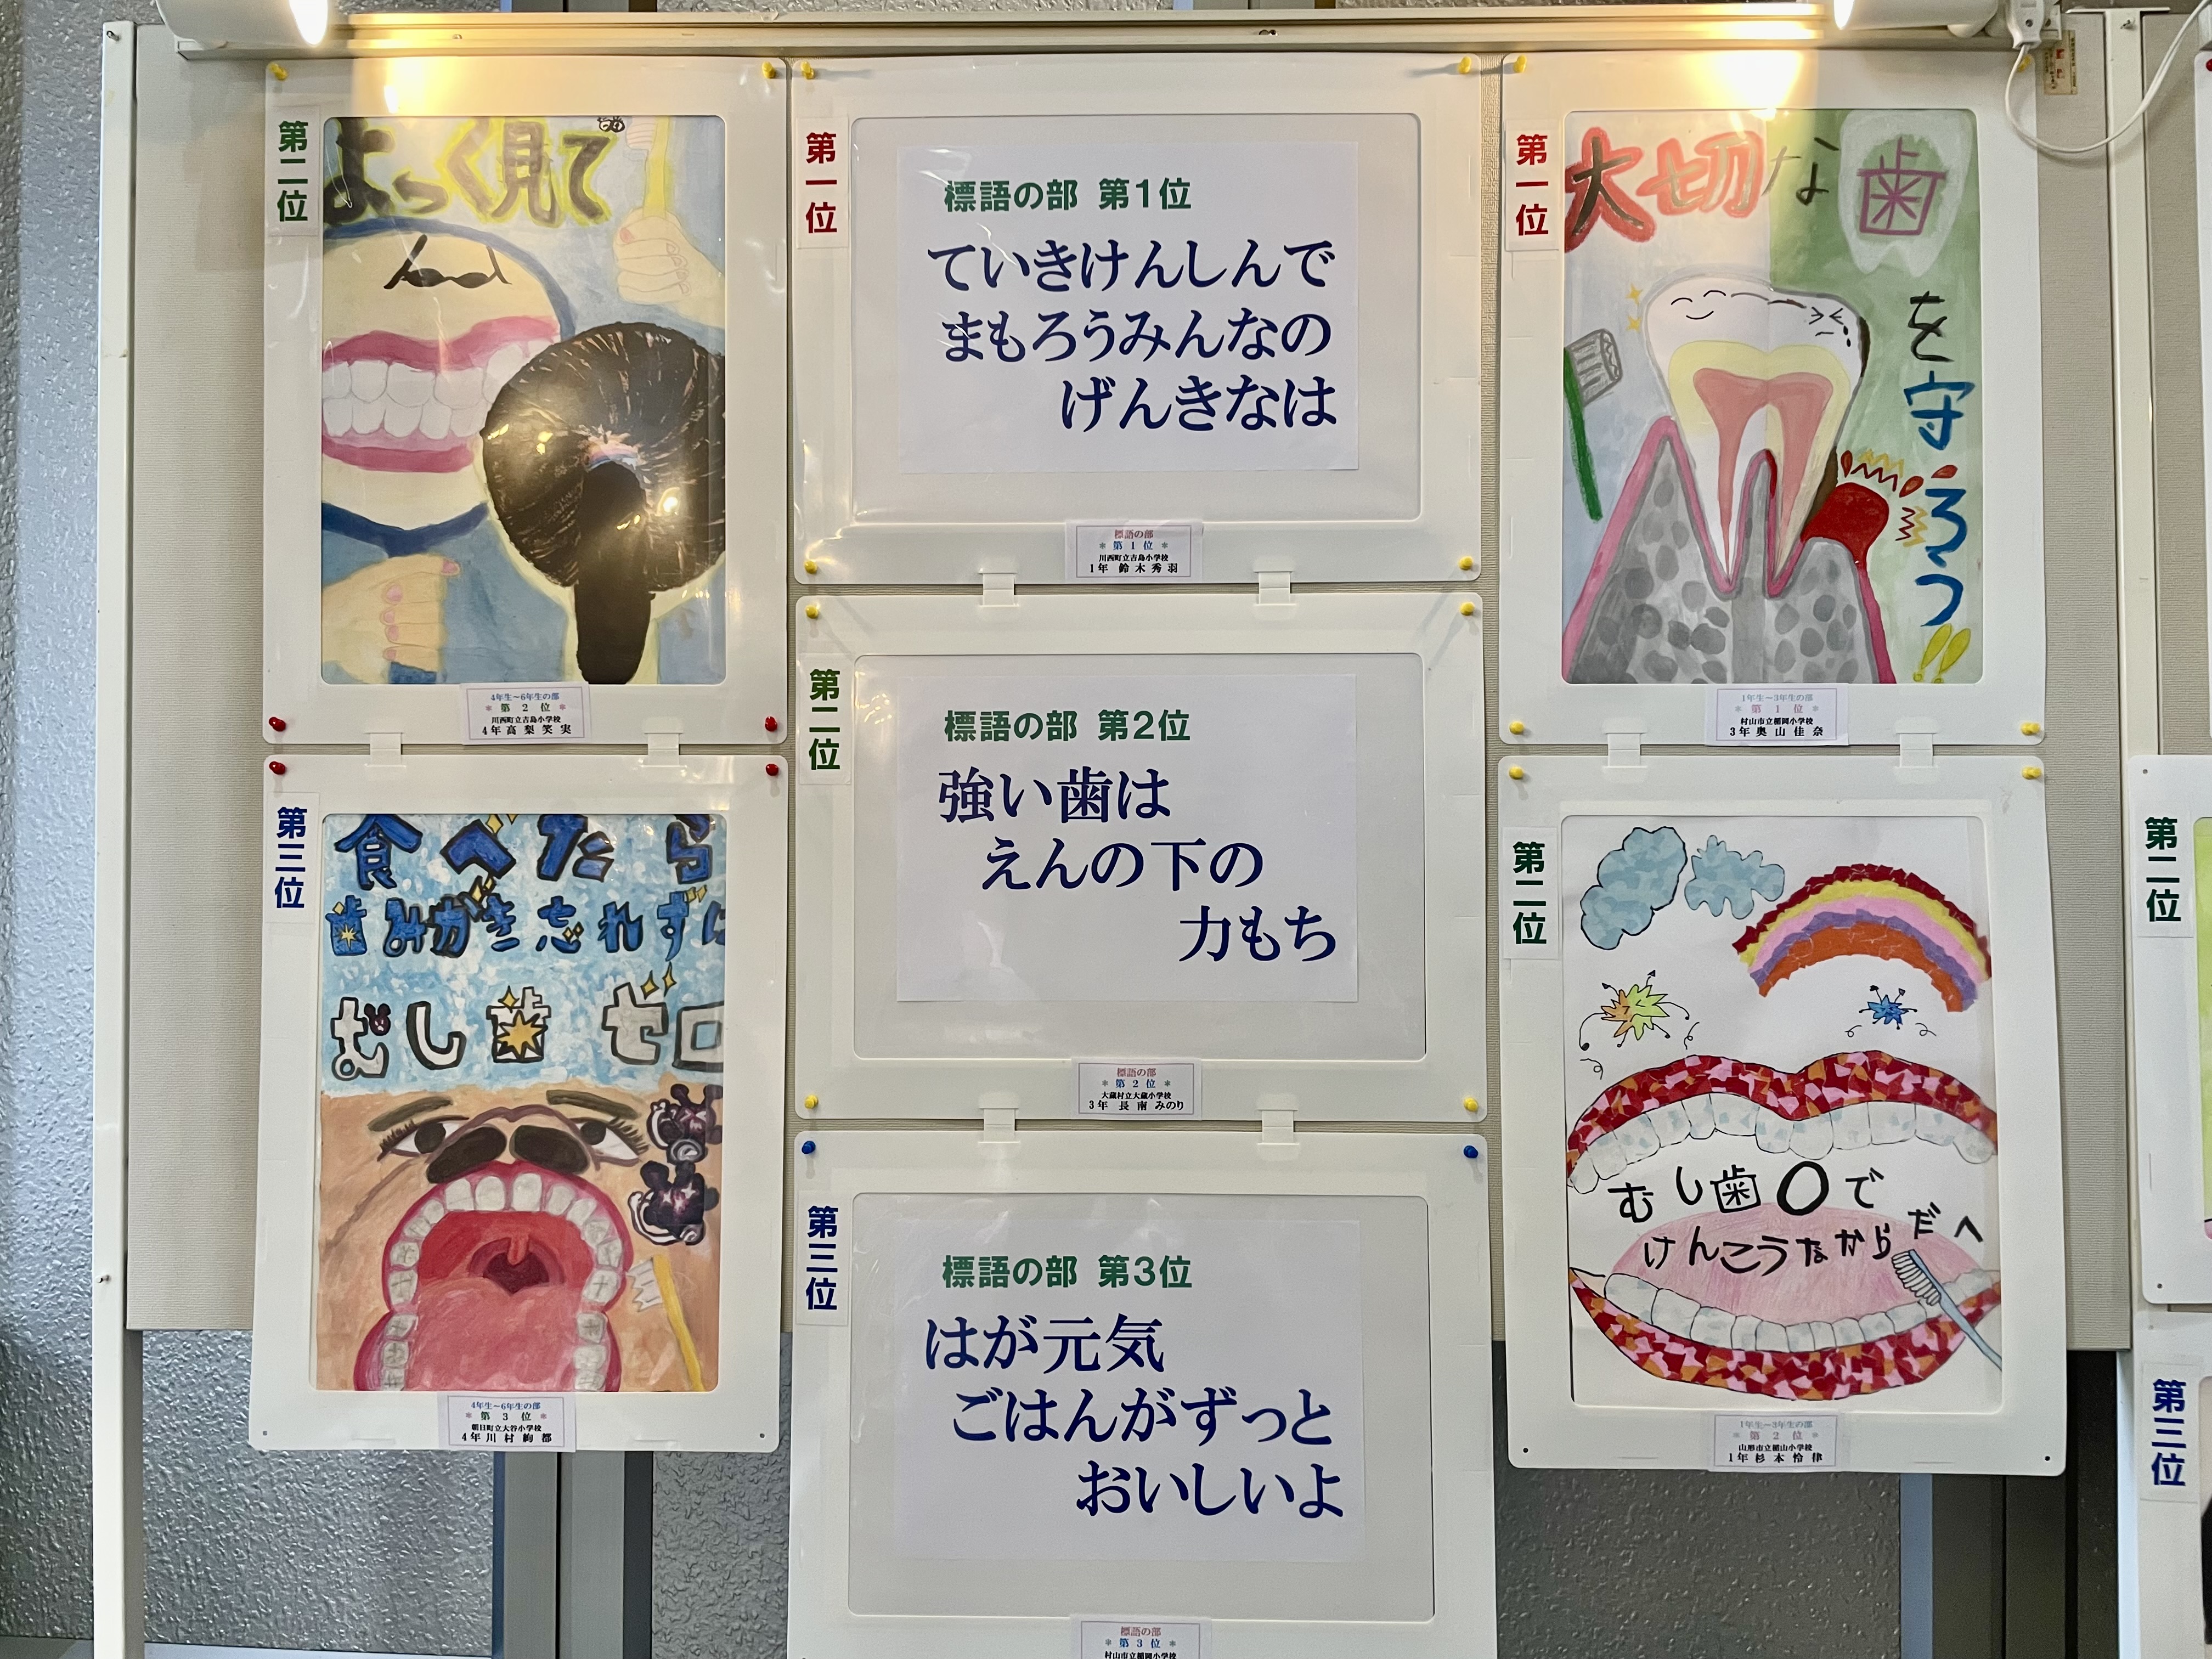 第二位
よーく見て
4年生～6年生の部
＊ 第 2 位 ＊
川西町立吉島小学校
4年 高梨笑実
第三位
食べたら
歯みがき忘れずに
むし歯ゼロ
4年生～6年生の部
＊ 第 3 位 ＊
朝日町立大谷小学校
4年 川村絢都
第一位
標語の部 第1位
ていきけんしんで
まもろうみんなの
げんきなは
標語の部
＊ 第 1 位 ＊
川西町立吉島小学校
1年 鈴木秀羽
第二位
標語の部 第2位
強い歯は
えんの下の
力もち
標語の部
＊ 第 2 位 ＊
大蔵村立大蔵小学校
3年 長南みのり
第三位
標語の部 第3位
はが元気
ごはんがずっと
おいしいよ
標語の部
＊ 第 3 位 ＊
村山市立楯岡小学校
第一位
大切な歯
を守ろう!!
1年生～3年生の部
＊ 第 1 位 ＊
村山市立楯岡小学校
3年 奥山佳奈
第二位
むし歯0で
けんこうなからだへ
1年生～3年生の部
＊ 第 2 位 ＊
山形市立楯山小学校
1年 杉本怜律
第二位
第三位